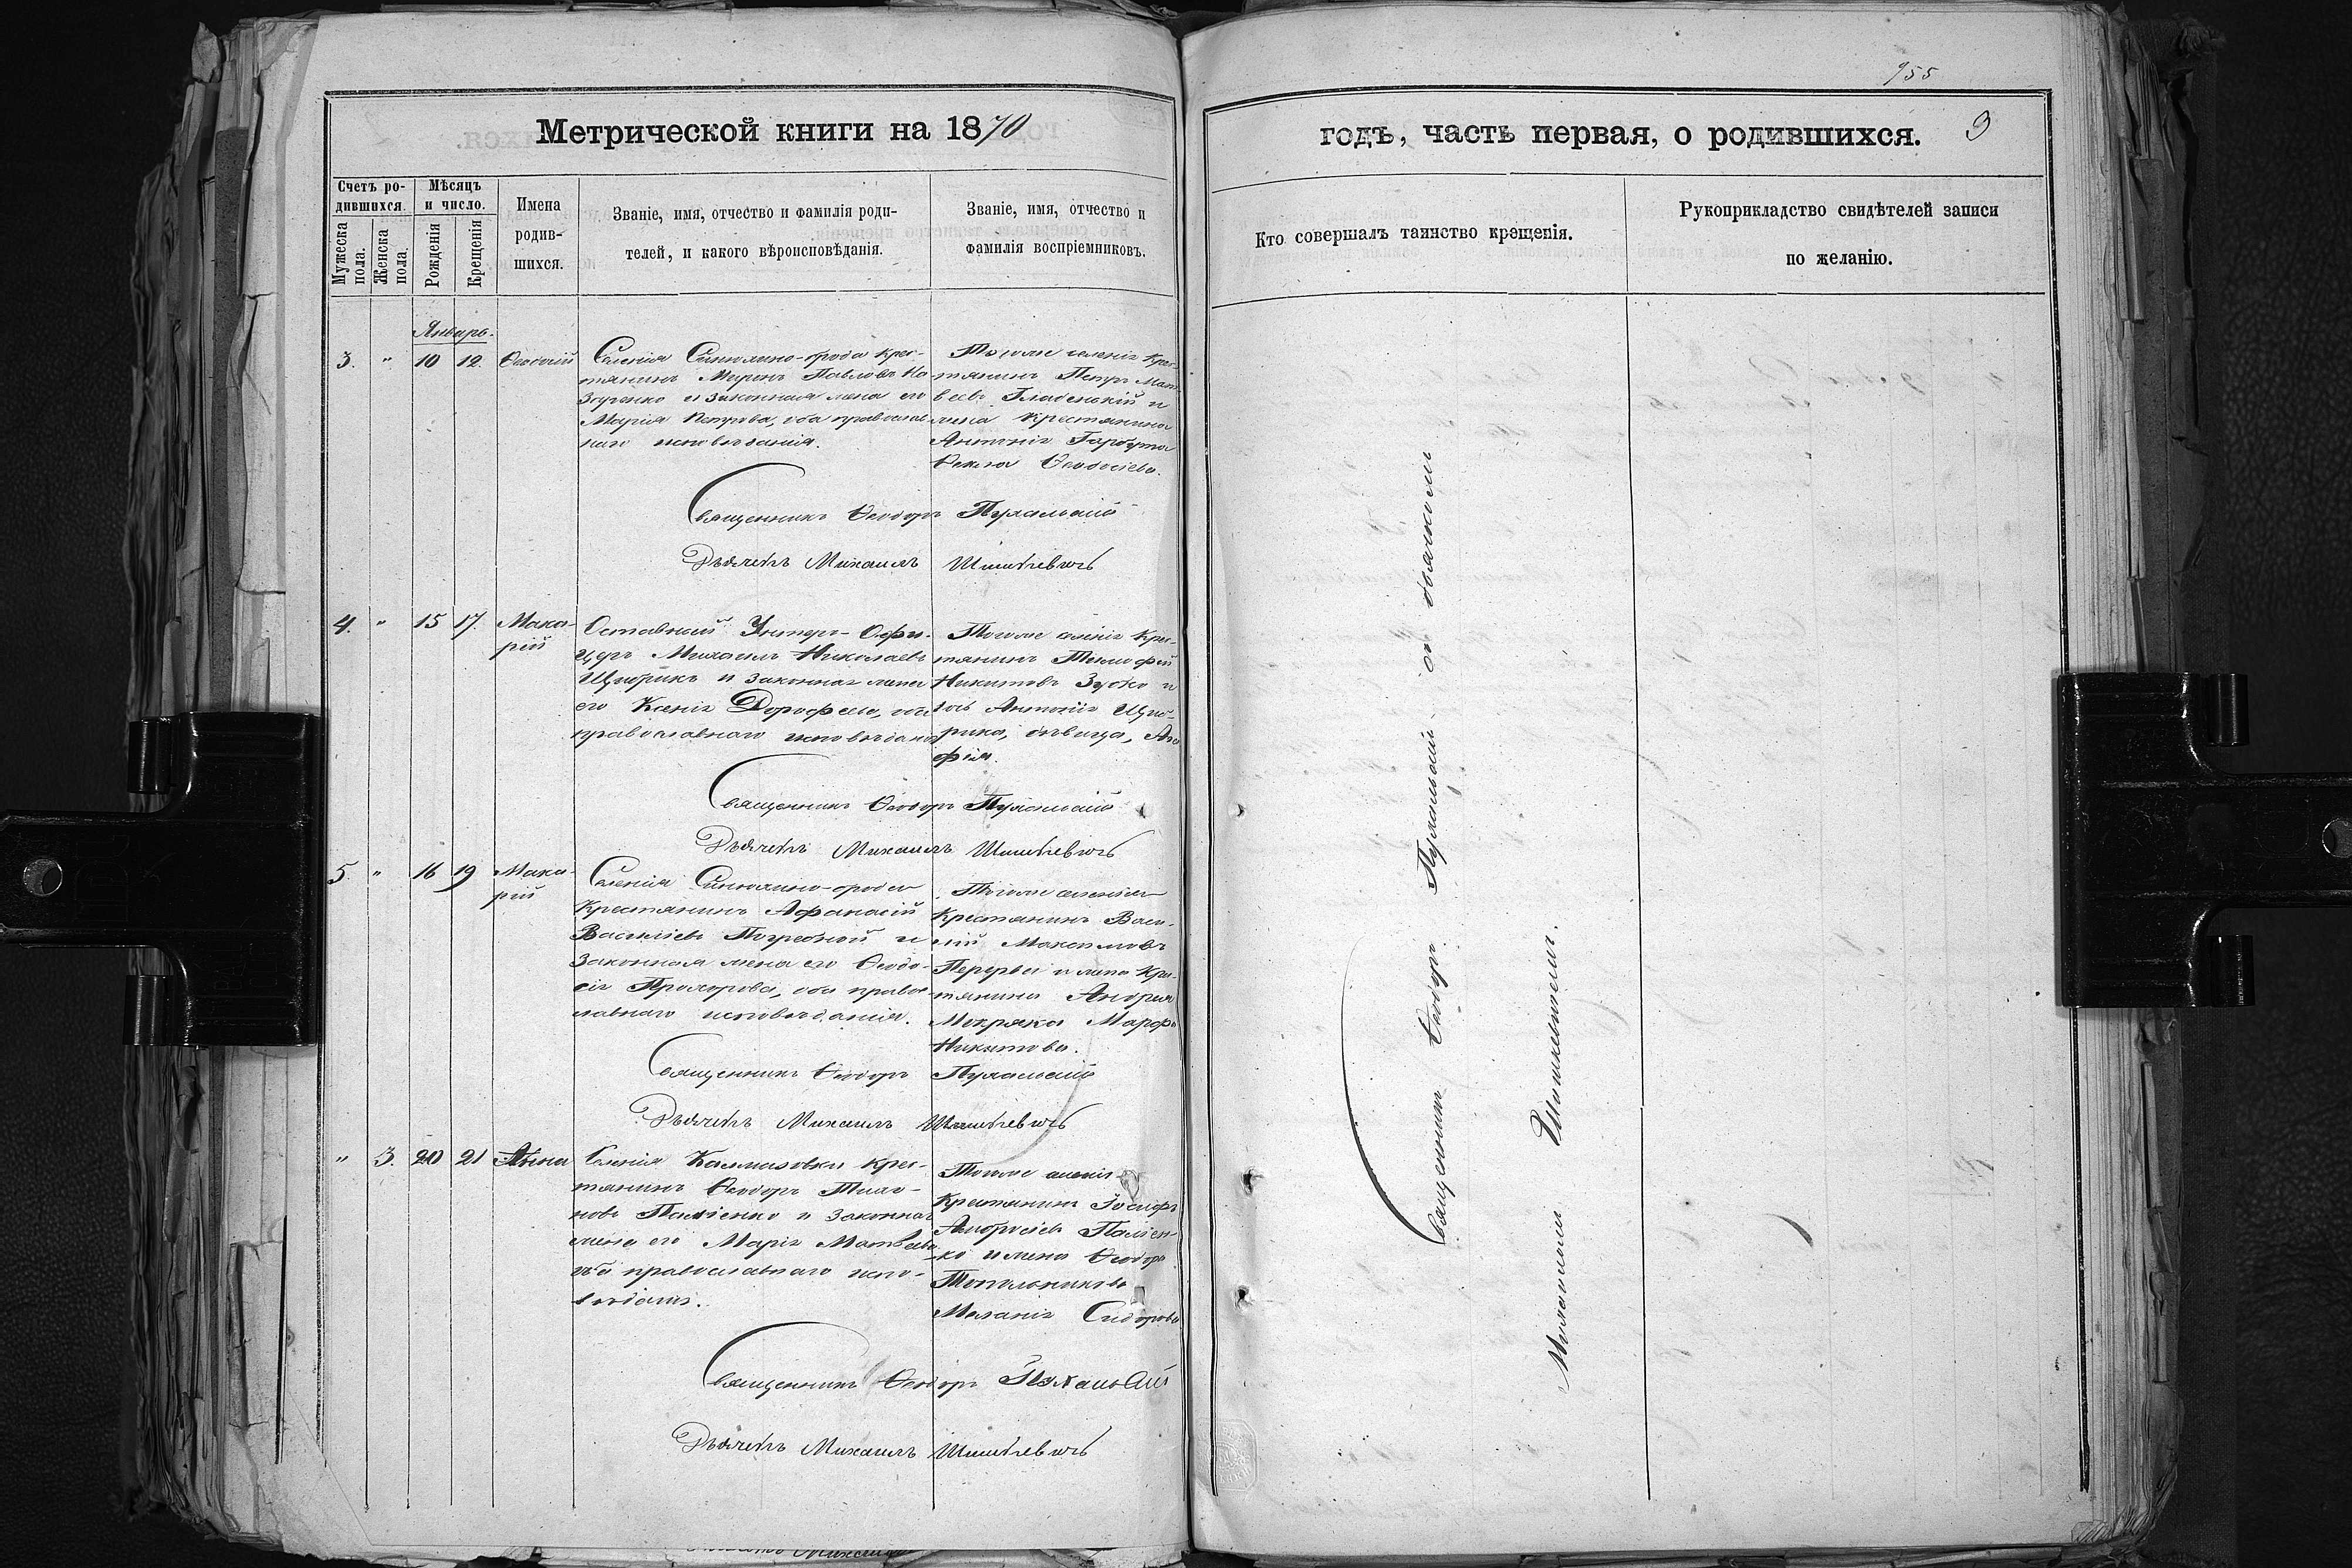 955
Метрической книги на 1870
годъ, часть первая, о родившихся. 9
Счетъ родившихся.
Мужеска пола.
Женска пола.
Мѣсяцъ и число.
Рожденія
Крещенія
Имена родившихся.
Званіе, имя, отчество и фамилія родителей, и какого вѣроисповѣданія.
Званіе, имя, отчество и фамилія воспріемниковъ.
Кто совершалъ таинство крещенія.
Рукоприкладство свидѣтелей записи по желанію.
Январь.
3. " 10 12. Ѳеодосій
Селенія крес-
тянинъ Миронъ Павловъ На-
зоренко и законная жена его
Марія Петрова, оба православ
наго исповѣданія.
Тогоже селенія крес-
тянинъ Петръ Мат
веевъ Гладенькій и
жена Крестянина
Антонія Гарбуза
Ѳекла Ѳеодосіева.
Священникъ Ѳеодоръ
Михаилъ
4. " 15 17. Мака-
рій
Оставный Унтеръ-Офи-
церъ Михаилъ Николаевъ
Щирикъ и законная жена
его Ксенія Дорофеева, оба
православнаго исповѣданія
Тогоже селенія Крес-
тянинъ Тимофей
Никитовъ и
дочь Антонія
девица,
фія.
Священникъ Ѳеодоръ
Михаилъ
5. " 16 19 Мака-
рій
Селенія
Крестянинъ Афанасій
Василіевъ Погребной и
законная жена его Ѳеодо-
сія Прохорова, оба право-
славнаго исповѣданія.
Тогоже селенія
Крестянинъ Васи-
лій Максимовъ
и жена Крес-
тянина Андрея
Мокряка Марфа
Никитова.
Священникъ Ѳеодоръ
Михаилъ
" 3. 20 21 Анна
Селенія Калмазовки крес-
тянинъ Ѳеодоръ Тихо-
новъ Паліенко и законная
жена его Марія Матвеева
оба православнаго испо-
вѣданія.
Тогоже селенія
Крестянинъ Іосифъ
Амвросіевъ Паліен-
ко и жена Ѳеодора
Топольникова
Меланія Сидорова
Священникъ Ѳеодоръ
Михаилъ
Священникъ Ѳеодоръ съ дьячкомъ
Михаиломъ